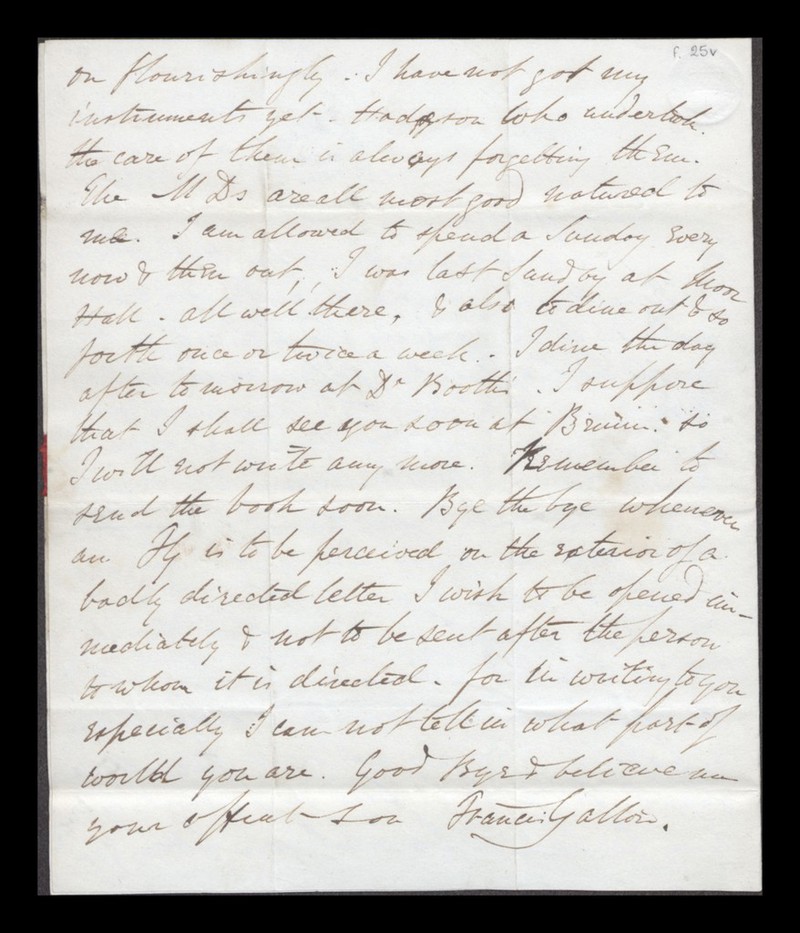 f. 25v
on flourishingly. I have not got my
instruments yet. Hodgson who undertook
the care of them is always forgetting them.
The M Ds are all most good natured to
me. I am allowed to spend a Sunday every
now & then out, I was last Sunday at Moor
Hall. all well there, & also to dine out & so
forth once or twice a week. I dine the day
after tomorrow at Dr Booth's. I suppose
that I shall see you soon at Brmm. so
I will not write any more. Remember to
send the book soon. Bye the bye whenever
an is to be perceived on the exterior of a
badly directed letter I wish to be opened im-
mediately & not to be sent after the person
to whom it is directed. for in writing to you
especially I can not tell in what part of
world you are. Good Bye & believe me
your affeat son Francis Galton.